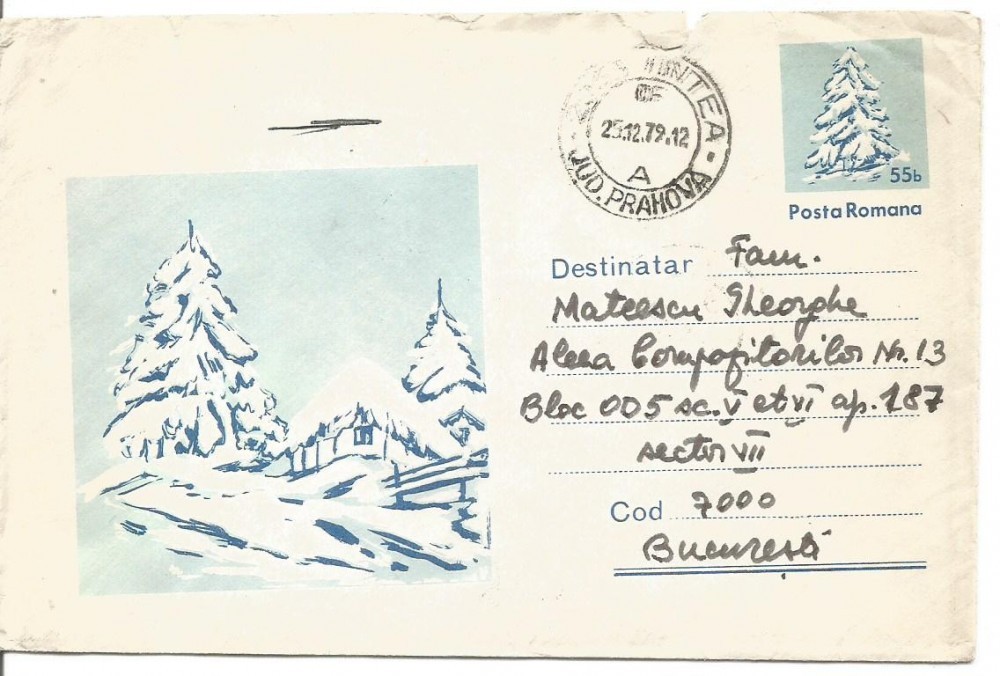 CF
25.12.79.12
A
JUD. PRAHOVA
55b
Posta Romana
Destinatar Fam.
Mateescu Gheorghe
Aleea Compozitorilor Nr. 13
Bloc OD5 sc. V et VI ap. 187
sector VII
Cod 7000
București